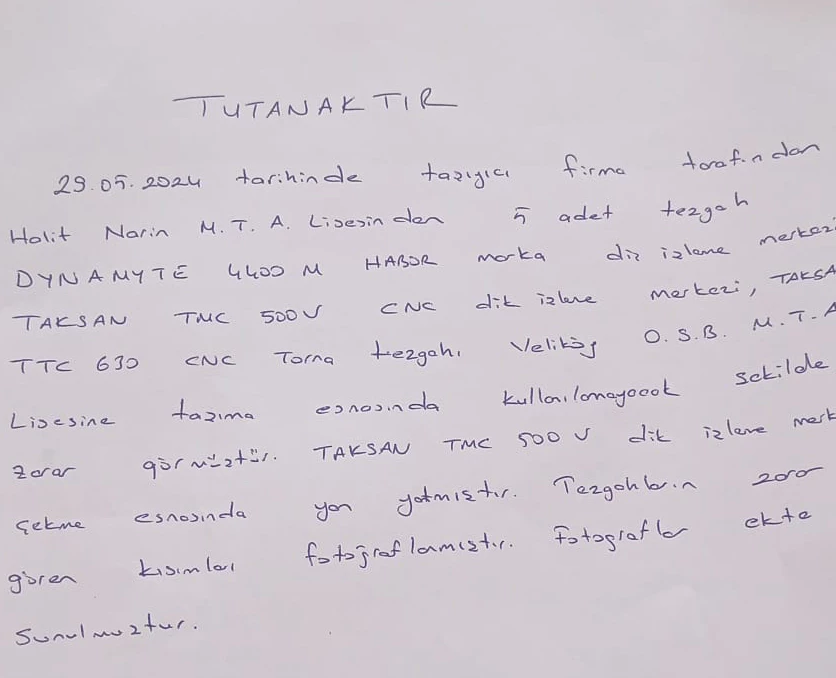 TUTANAKTIR
29.05.2024 tarihinde taşıyıcı firma tarafından
Halit Narin M.T.A. Lisesinden 5 adet tezgah
DYNAMYTE 4400 M HABOR marka dik işleme merkezi
TAKSAN TMC 500V CNC dik işleme merkezi, TAKSA
TTC 630 CNC Torna tezgahı Veliköy O.S.B. M.T.A
Lisesine taşıma esnasında kullanılamayacak şekilde
zarar görmüştür. TAKSAN TMC 500 V dik işleme merk
çekme esnasında yan yatmıştır. Tezgahların zarar
gören kısımları fotoğraflanmıştır. Fotograflar ekte
Sunulmuştur.